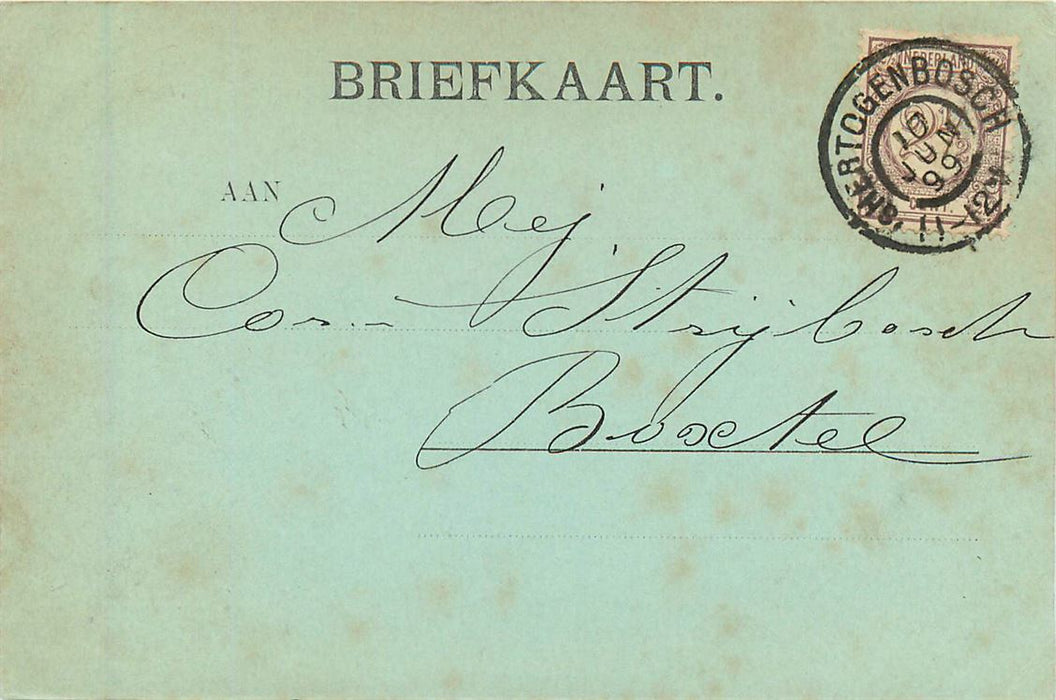 BRIEFKAART.
NEDERLAND
'SHERTOGENBOSCH
10 JUN 99
11-12V
CENT.
AAN Mej
Cor. Strijbosch
Boxtel